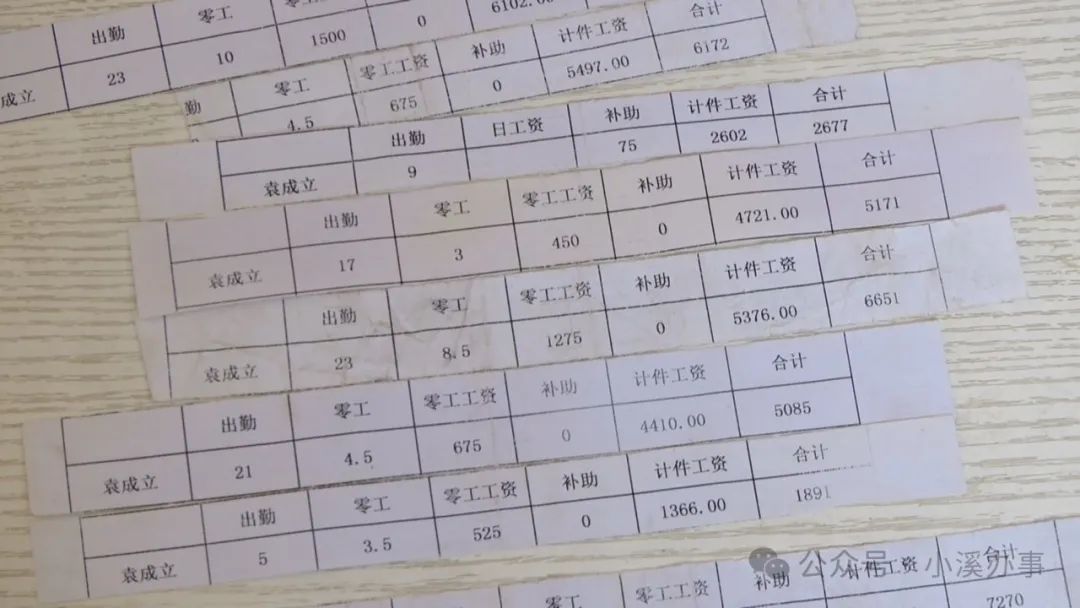 出勤 零工
成立 23 10 1500 0 6102.00
勤 零工 零工工资 补助 计件工资 合计
4.5 675 0 5497.00 6172
出勤 日工资 补助 计件工资 合计
袁成立 9 75 2602 2677
出勤 零工 零工工资 补助 计件工资 合计
袁成立 17 3 450 0 4721.00 5171
出勤 零工 零工工资 补助 计件工资 合计
袁成立 23 8.5 1275 0 5376.00 6651
出勤 零工 零工工资 补助 计件工资 合计
袁成立 21 4.5 675 0 4410.00 5085
出勤 零工 零工工资 补助 计件工资 合计
袁成立 5 3.5 525 0 1366.00 1891
零工 零工工资 补助 计件工资 合计
7270
公众号 · 小溪办事